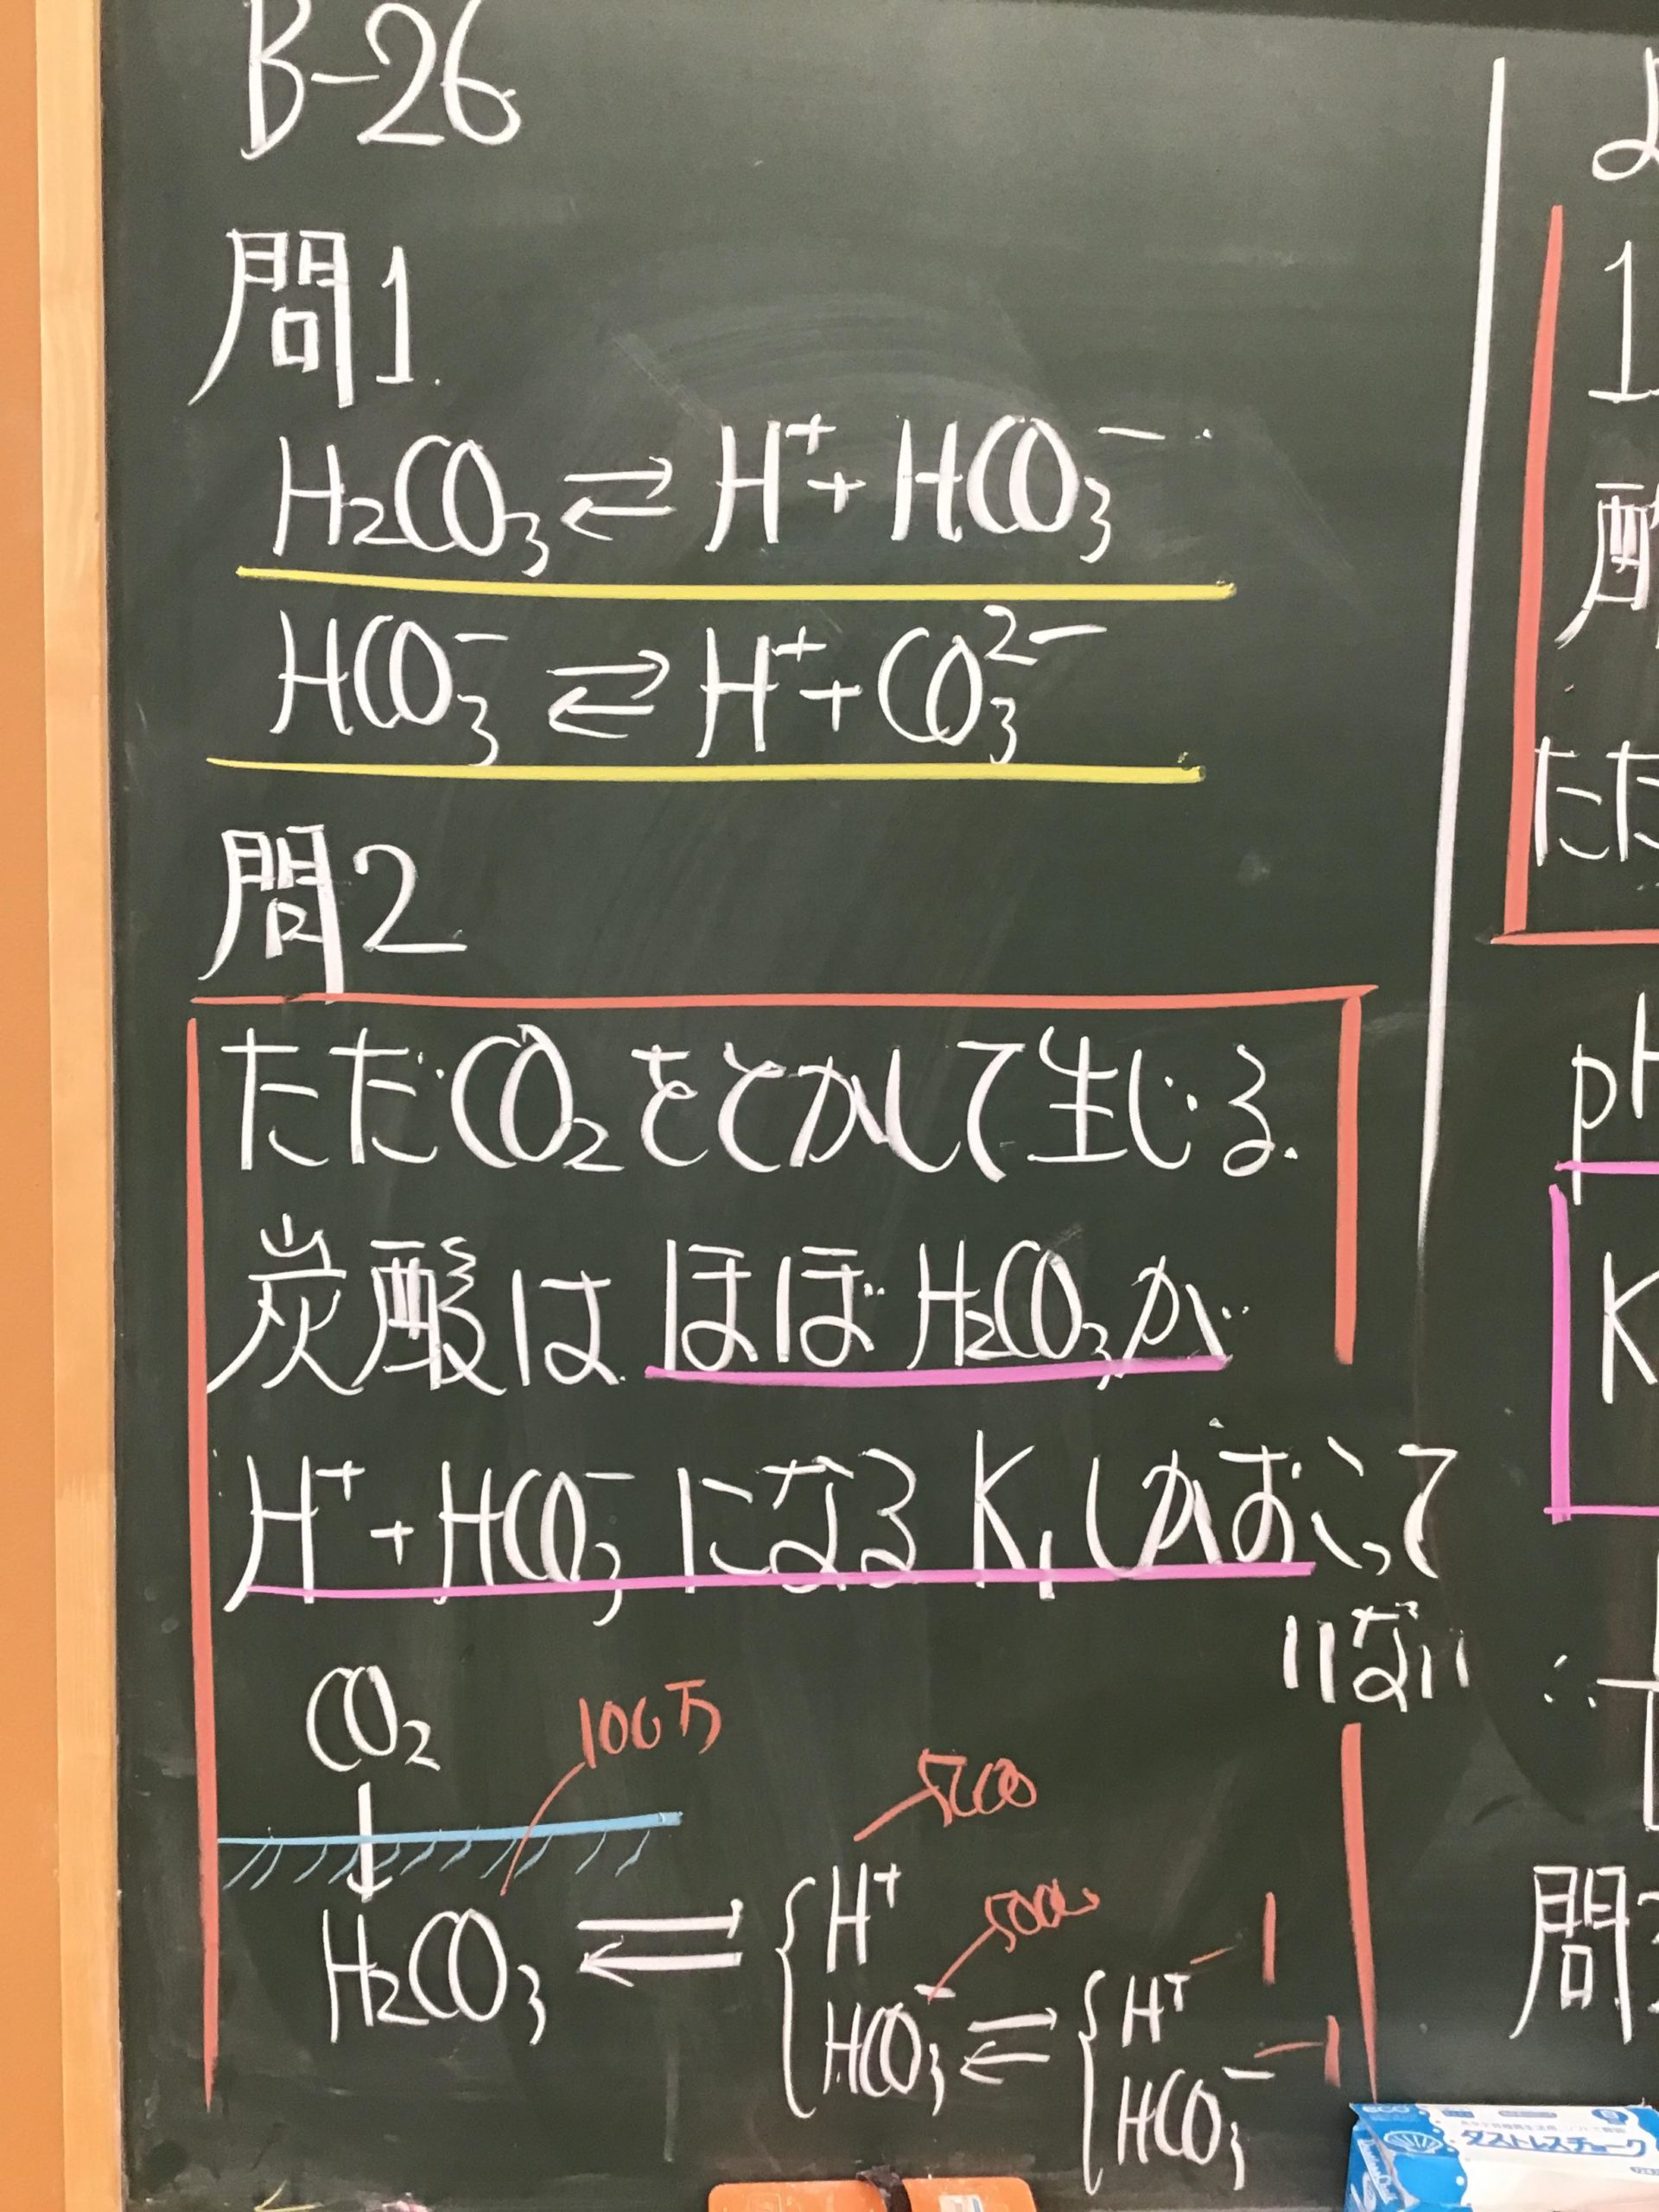 B-26
問1.
H₂CO₃ ⇄ H⁺ + HCO₃⁻
HCO₃⁻ ⇄ H⁺ + CO₃²⁻
問2
ただCO₂をとかして生じる
炭酸は ほぼ H₂CO₃が
H⁺ + HCO₃⁻ になる K₁しかおこって
いない
CO₂
100万
H₂CO₃ ⇄ { H⁺
HCO₃⁻ ⇄ { H⁺ 1
HCO₃⁻ 1
1
酸
ただ
pH
K
∴
問
eco
ダストレスチョーク